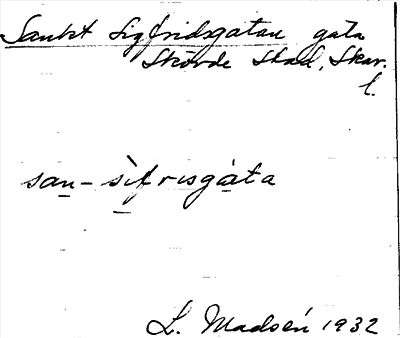 Sankt Sigfridsgatan gata
Skövde stad, Skar.
l.
san-sìfrisgàta
L. Madsén 1932